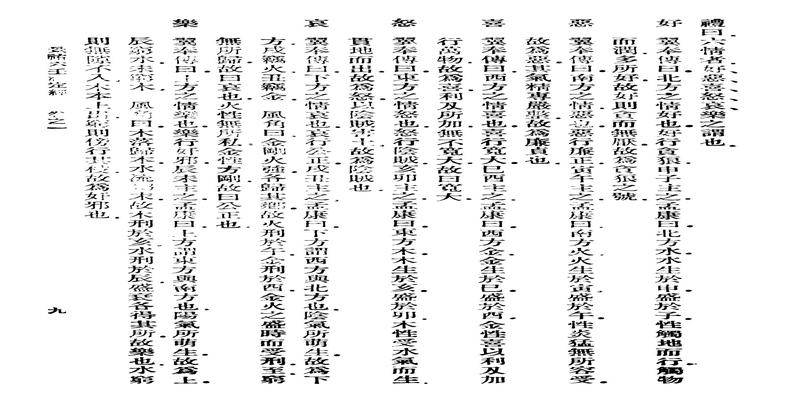 禮曰六情者好惡喜怒哀樂之謂也
好 翼奉傳曰北方之情好也好行貪狼申子主之孟康曰北方水水生於申盛於子水性觸地而行觸物
而潤多所好故好則貪而無厭故為貪狼之號
惡 翼奉傳曰南方之情惡也惡行廉正寅午主之孟康曰南方火火生於寅盛於午火性炎猛無所容受
故為惡其氣精專嚴整故為廉貞也
喜 翼奉傳曰西方之情喜也喜行寬大巳酉主之孟康曰西方金金生於巳盛於酉金性喜以利及加
行萬物故為喜利及所加無不寬大故曰寬大
怒 翼奉傳曰東方之情怒也怒行陰賊亥卯主之孟康曰東方木木生於亥盛於卯木性受水氣而生
貫地而出故為怒以陰賊害土故為陰賊也
哀 翼奉傳曰下方之情哀也哀行公正戌丑主之孟康曰下方謂西方與北方也陰氣所萌生故為下
方戌窮火丑窮金 風角曰金剛火強各歸其鄉故火刑於午金刑於酉金火之盛時而受刑至窮
無所歸故曰哀也火性無所私金性方剛故曰公正也
樂 翼奉傳曰上方之情樂也樂行姦邪辰未主之孟康曰上方謂東方與南方也陽氣所萌生故為上
辰窮水未窮木 風角曰木落歸本水流歸末故木刑於亥水刑於辰盛衰各得其所故樂也水窮
則無隙不入木上出窮則傍行故為姦邪也
九